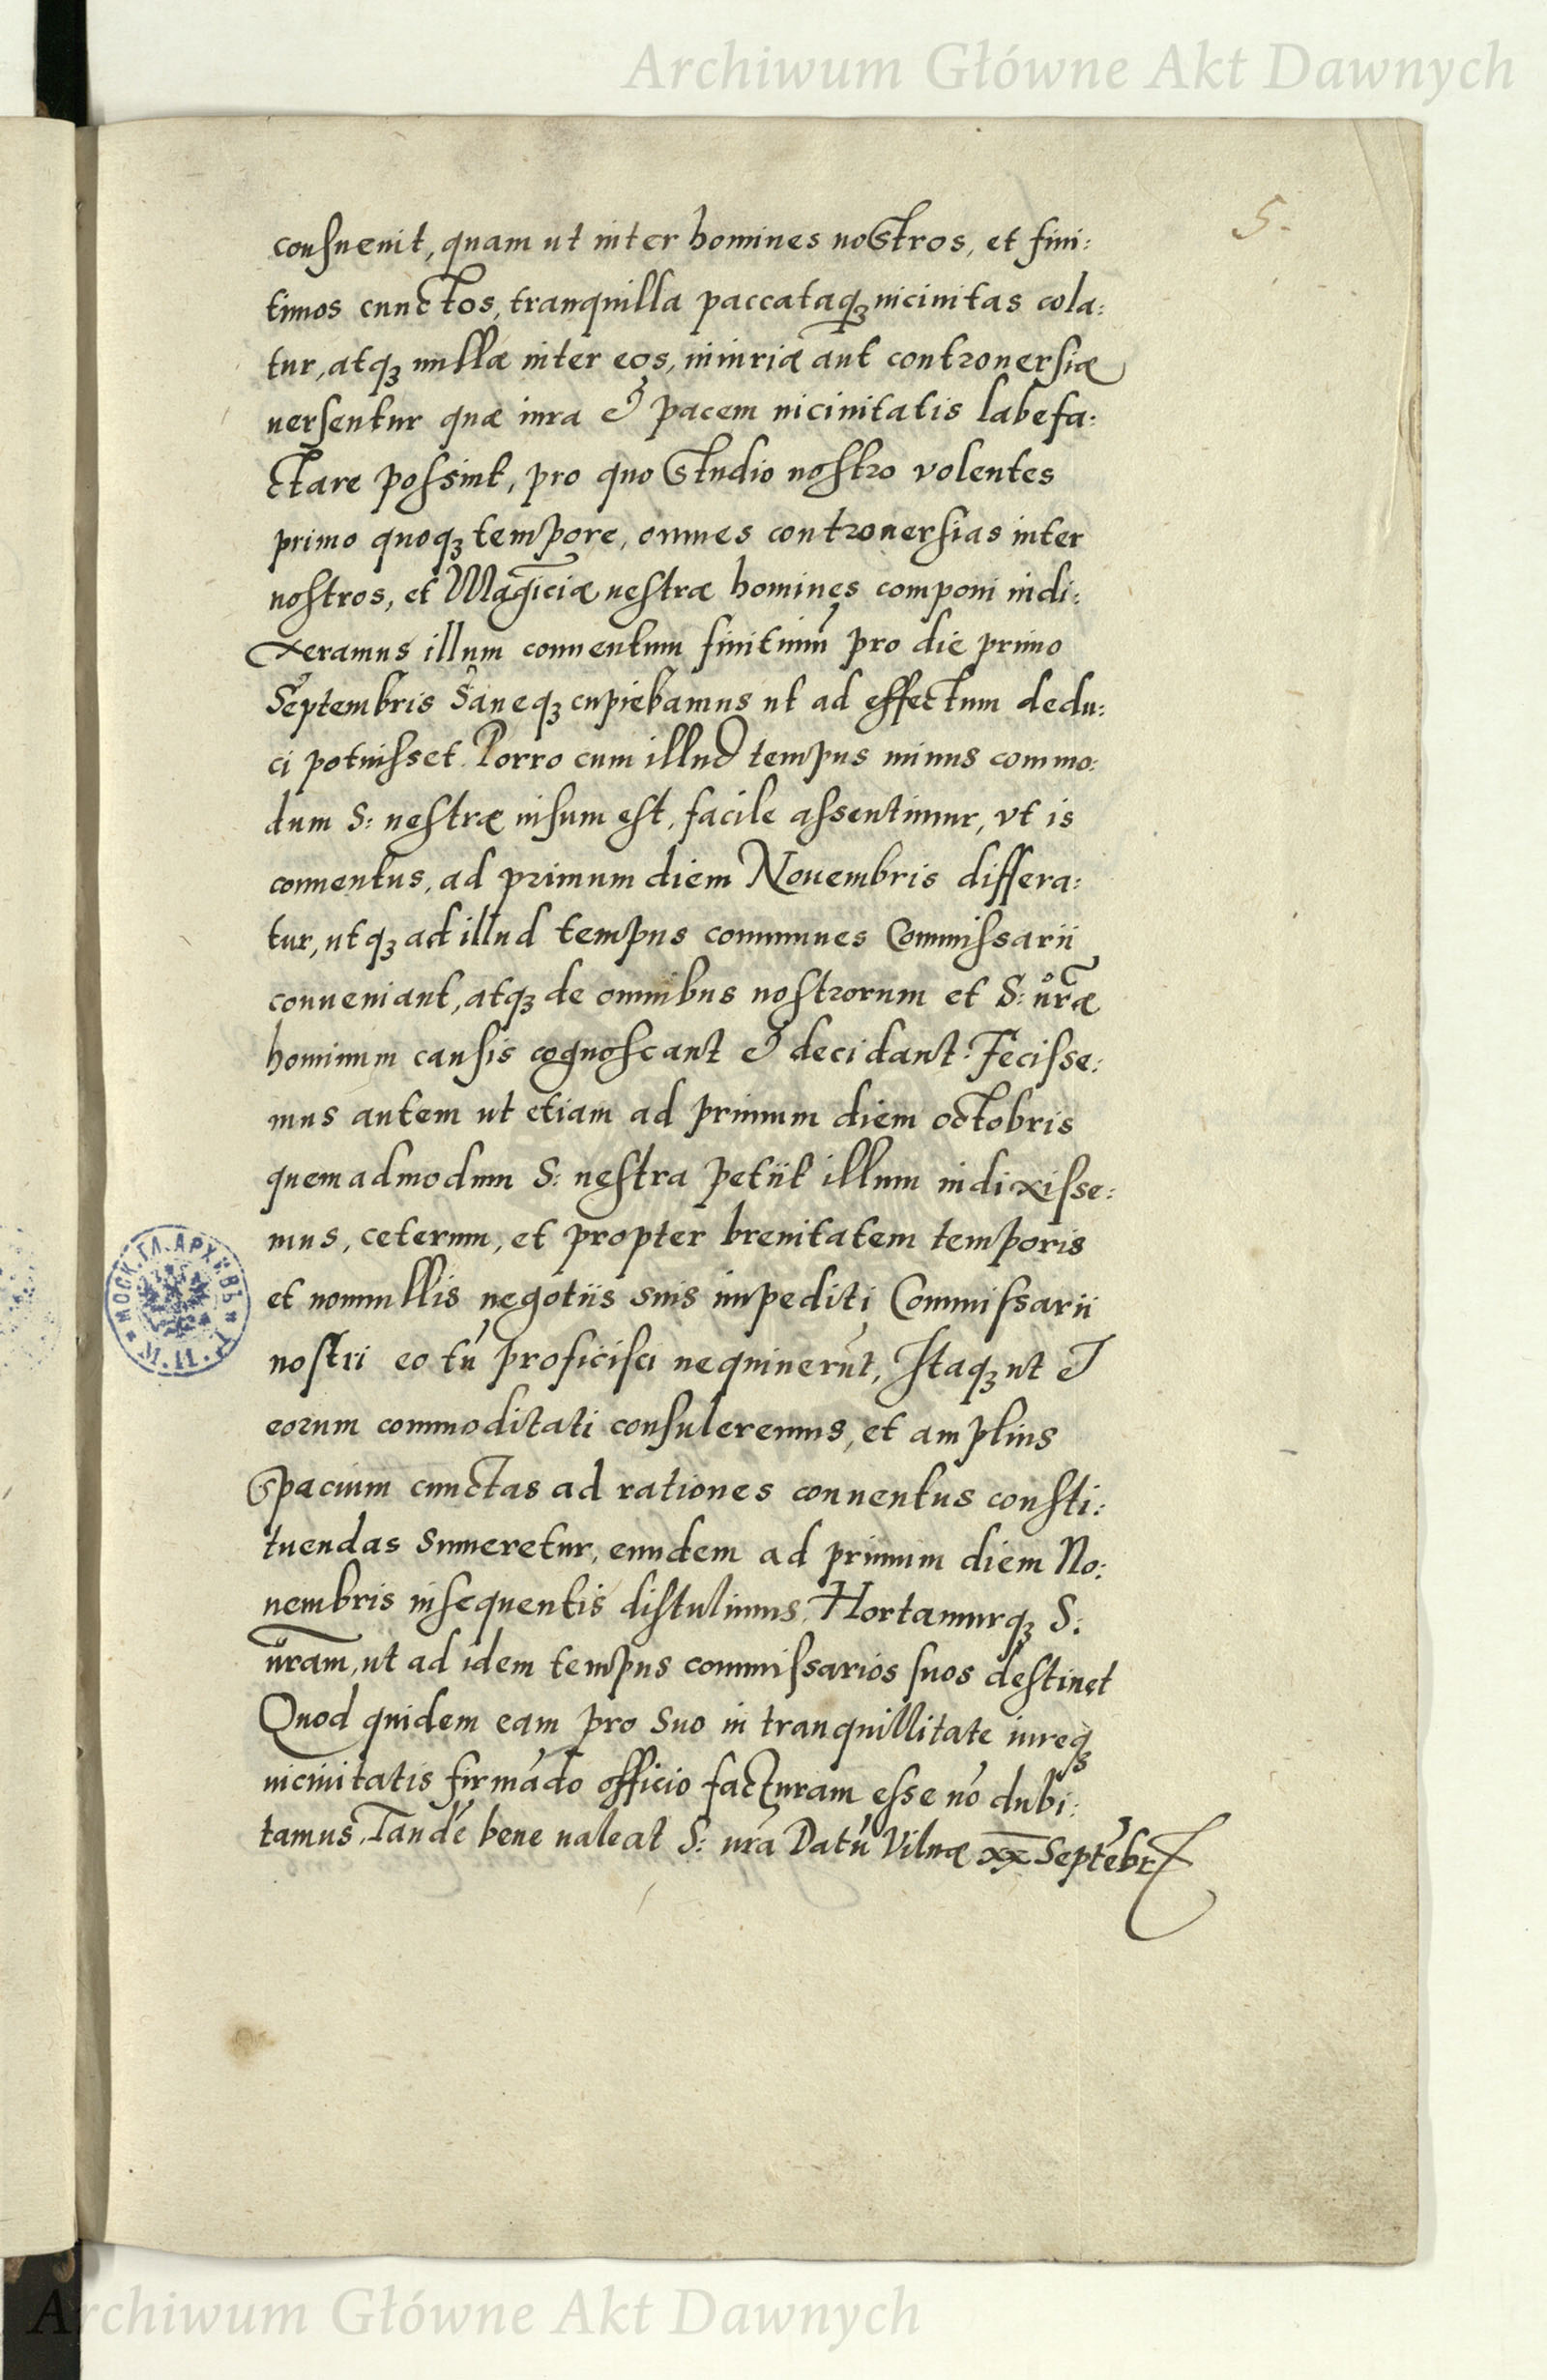 Archiwum Główne Akt Dawnych
5.
consueuit, quam ut inter homines nostros, et fini:
timos cunctos, tranquilla paccataqꝫ uicinitas cola:
tur, atqꝫ nullæ inter eos, iniuriæ aut controuersiæ
uersentur quæ iura & pacem uicinitatis labefa:
ctare possint, pro quo studio nostro volentes
primo quoqꝫ tempore, omnes controuersias inter
nostros, et Magciæ uestræ homines componi indi:
xeramus illum conuentum finitimũ pro die primo
Septembris Saneqꝫ cupiebamus ut ad effectum dedu:
ci potuisset. Porro cum illud tempus minus commo:
dum S: uestræ uisum est, facile assentimur, vt is
conuentus, ad primum diem Nouembris differa:
tur, utqꝫ ad illud tempus communes Commissarii
conueniant, atqꝫ de omnibus nostrorum et S: ur̃æ
hominum causis cognoscant & decidant. Fecisse:
mus autem ut etiam ad primum diem octobris
quemadmodum S: uestra petiit illum indixisse:
mus, ceterum, et propter breuitatem temporis
et nonnullis negotiis suis impediti Commissarii
nostri eo tũ proficisci nequiuerũt, Itaqꝫ ut &
eorum commoditati consuleremus, et amplius
spacium cunctas ad rationes conuentus consti:
tuendas sumeretur, eundem ad primum diem No:
uembris insequentis distulimus. Hortamurqꝫ S:
ur̃am, ut ad idem tempus commissarios suos destinet
Quod quidem eam pro suo in tranquillitate iureqꝫ
uicinitatis firmãdo officio facturam esse nõ dubi:
tamus. Tandẽ bene ualeat S: ur̃a Datũ Vilnæ xx Septẽbr
МОСК. ГЛ. АРХИВЪ
Archiwum Główne Akt Dawnych